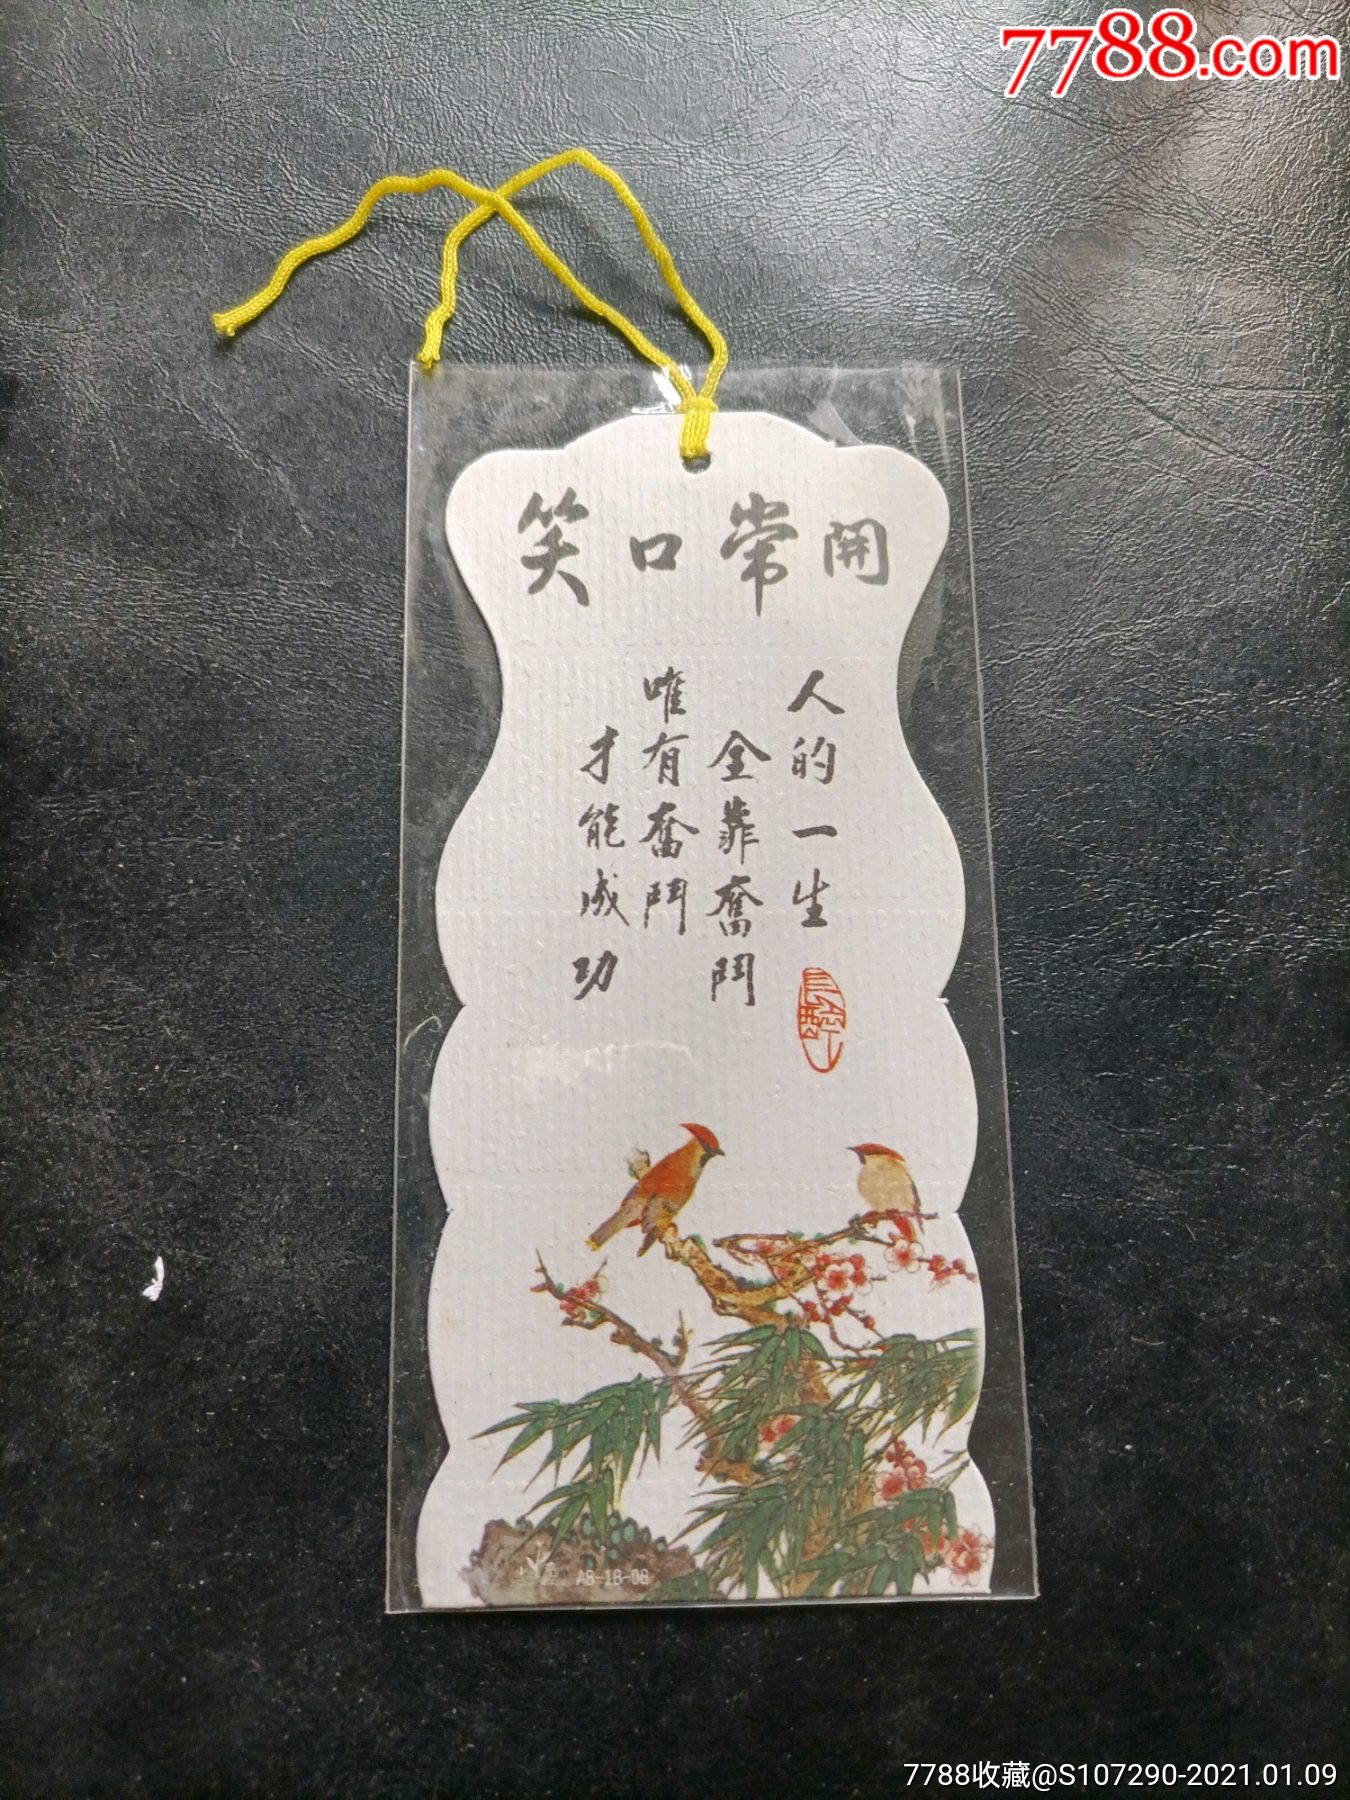 7788.com
笑口常開
人的一生
全靠奮鬥
唯有奮鬥
才能成功
7788收藏@S107290-2021.01.09